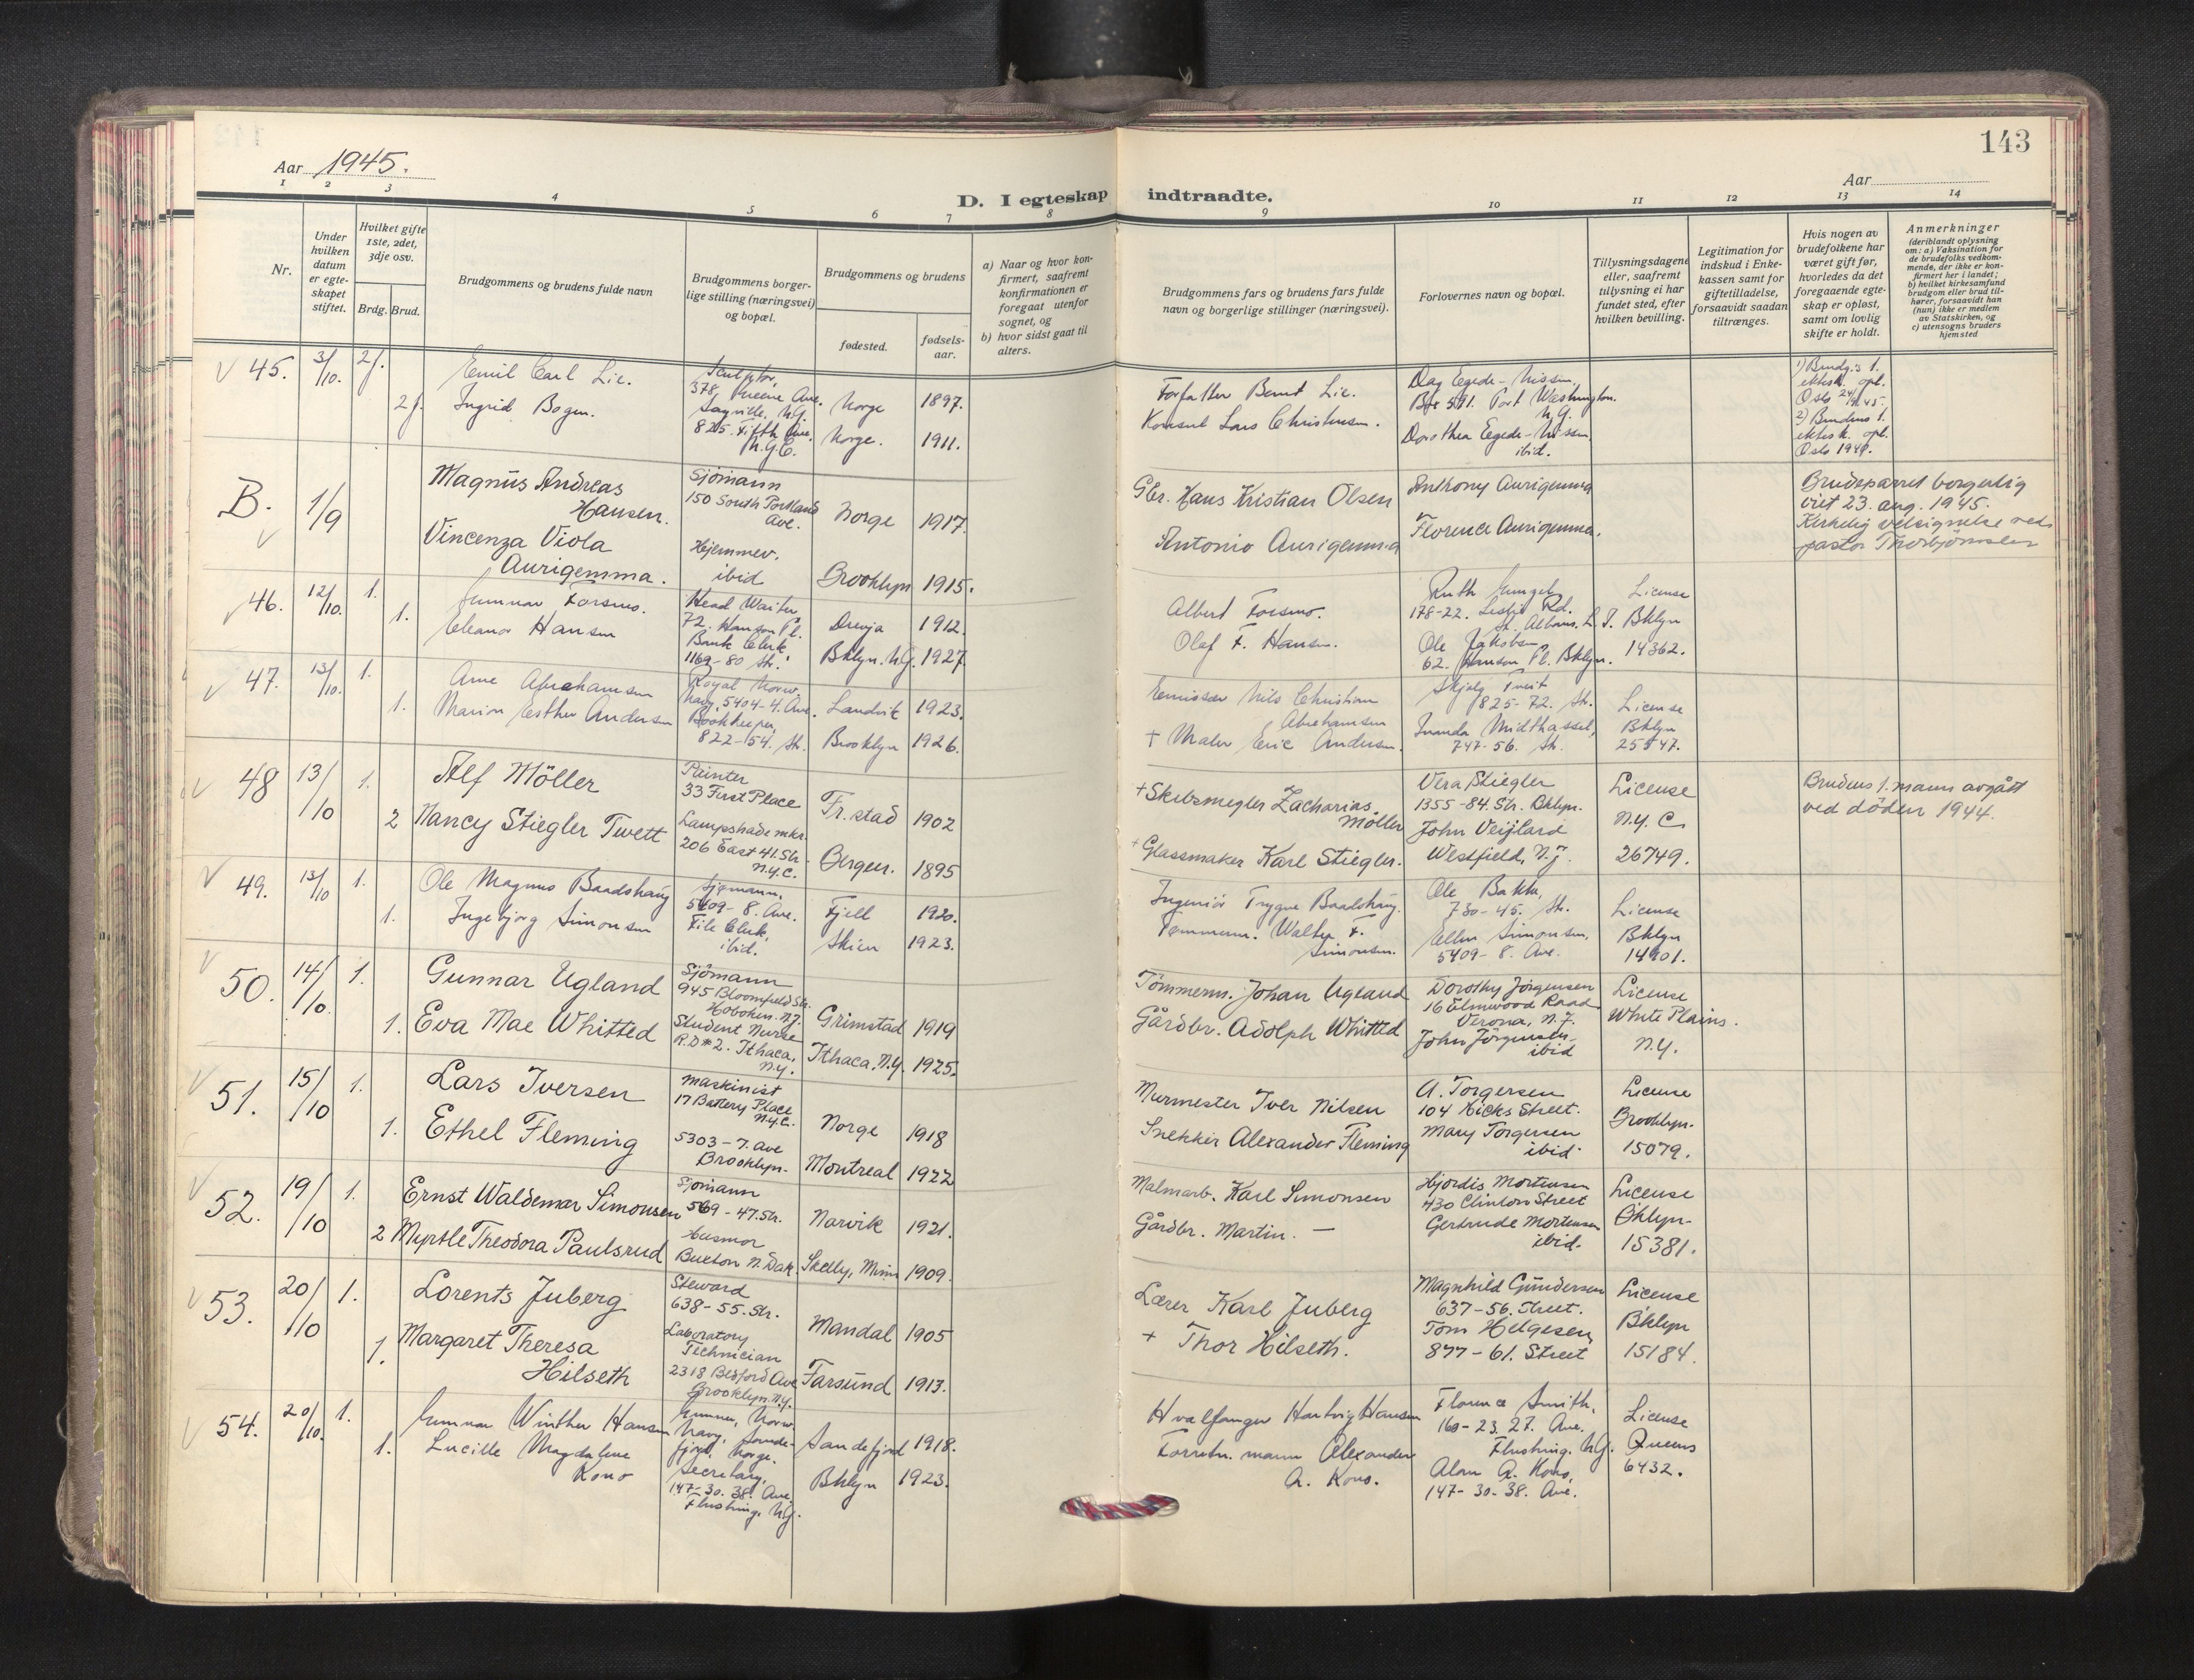 143
Aar 1945.
Aar
D. I egteskap indtraadte.
1 2 3 4 5 6 7 8 9 10 11 12 13 14
Nr.
Under hvilken datum er egteskapet stiftet.
Hvilket gifte 1ste, 2det, 3dje osv.
Brdg. Brud.
Brudgommens og brudens fulde navn
Brudgommens borgerlige stilling (næringsvei) og bopæl.
Brudgommens og brudens
fødested.
fødselsaar.
a) Naar og hvor konfirmert, saafremt konfirmationen er foregaat utenfor sognet, og
b) hvor sidst gaat til alters.
Brudgommens fars og brudens fars fulde navn og borgerlige stillinger (næringsvei).
Forlovernes navn og bopæl.
Tillysningsdagene eller, saafremt tillysning ei har fundet sted, efter hvilken bevilling.
Legitimation for indskud i Enkekassen samt for giftetilladelse, forsaavidt saadan tiltrænges.
Hvis nogen av brudefolkene har været gift før, hvorledes da det foregaaende egteskap er opløst, samt om lovlig skifte er holdt.
Anmerkninger
(deriblandt oplysning om: a) Vaksination for de brudefolks vedkommende, der ikke er konfirmert her i landet;
b) hvilket kirkesamfund brudgom eller brud tilhører, forsaavidt han (hun) ikke er medlem av Statskirken, og
c) utensogns bruders hjemsted
45. 3/10. 2g.
Emil Carl Lie.
Sculptor,
378, Greene Ave.
Sayville, N.Y.
Norge 1897.
Forfatter Bernt Lie.
Dag Egede-Nissen,
Box 591. Port Washington.
N.Y.
1) Brudg.s 1.
ektesk. opl.
Oslo 24/4 45.
2g. Ingrid Bogen.
825. Fifth Ave.
N.Y.C.
Norge. 1911.
Konsul Lars Christensen.
Dorothea Egede-Nissen
ibid.
2) Brudens 1.
ektesk. opl.
Oslo 1940.
B. 1/9
Magnus Andreas
Hansen.
Sjömann
150 South Portland
Ave.
Norge 1917.
Gbr. Hans Kristian Olsen
Anthony Aurigemma
Brudeparret borgerlig
viet 23. aug. 1945.
Kirkelig velsignelse ved
pastor Thorbjørnsen
Vincenza Viola
Aurigemma.
Hjemmev.
ibid
Brooklyn 1915.
Antonio Aurigemma
Florence Aurigemma.
46. 12/10. 1.
Gunnar Forsmo.
Head Waiter
72. Hanson Pl.
Drevja 1912.
Albert Forsmo.
Ruth
178-22. Leslie Rd.
St. Albans. L.I.
License
Bklyn
14362.
1. Eleanor Hansen
Bank Clerk
1169-80 Str.
Bklyn. N.Y. 1927.
Olaf F. Hansen.
Ole Jakobsen
62. Hanson Pl. Bklyn.
47. 13/10. 1.
Arne Abrahamsen
Royal Norw.
Navy, 5404-4. Ave.
Landvik 1923.
Emissær Nils Christian
Abrahamsen
Skjolg Tveit
825-72. Str.
License
Bklyn
25547.
1. Marion Esther Andersen
Bookkeeper,
822-54. Str.
Brooklyn 1926.
+ Maler Eric Andersen.
Gunda Midthassel,
747-56. Str.
48 13/10 1.
Alf Möller
Painter
33 First Place
Fr.stad 1902
+Skibsmegler Zacharias
Möller
Vera Stiegler
1355-84. Str. Bklyn.
License
N.Y.C
26749.
Brudens 1. mann avgått
ved döden 1944.
2 Nancy Stiegler Twett
Lampshade mkr.
206 East 41. Str.
N.Y.C.
Bergen. 1895
+Glassmaker Karl Stiegler.
John Veijlard
Westfield, N.J.
49. 13/10 1.
Ole Magnus Baadshaug
Sjømann,
5409-8. Ave.
Fjell 1920.
Ingeniör Trygve Baadshaug.
Ole Bakke,
730-45. Str.
License
Bklyn
14901.
1. Ingebjørg Simonsen
File Clerk,
ibid.
Skien 1923.
Tømmerm. Walter F.
Simonsen.
Ellen Simonsen,
5409-8. Ave.
50. 14/10. 1.
Gunnar Ugland
Sjömann
945 Bloomfield Str.
Hoboken. N.J.
Grimstad 1919
Tömmerm. Johan Ugland
Dorothy Jörgensen
16 Elmwood Road
Verona, N.J.
License
White Plains.
N.Y.
1. Eva Mae Whitted
Student Nurse
R.D#2. Ithaca,
N.Y.
Ithaca. N.Y. 1925.
Gårdbr. Adolph Whitted
John Jörgensen.
ibid
51. 15/10 1.
Lars Iversen
Maskinist
17 Battery Place
N.Y.C.
Norge 1918
Murmester Iver Nilsen
A. Torgersen
104 Hicks Street.
License
Brooklyn.
15079.
1. Ethel Fleming
5303-7. Ave
Brooklyn.
Montreal 1922
Snekker Alexander Fleming
Mary Torgersen
ibid.
52. 19/10 1.
Ernst Waldemar Simonsen
Sjömann
569-47. Str.
Narvik 1921.
Malmarb. Karl Simonsen
Hjördis Mortensen
430 Clinton Street
License
Bklyn.
15381.
2 Myrtle Theodora Paulsrud
Husmor
Buxton N. Dak.
Skelly, Minn 1909.
Gårdbr. Martin. —
Gertrude Mortensen
ibid.
53. 20/10 1.
Lorents Juberg
Steward
638-55. Str.
Mandal 1905
Lærer Karl Juberg
Magnhild Gundersen
637-56. Street.
License
Bklyn
15184.
1. Margaret Theresa
Hilseth
Laboratory
Technician
2318 Bedford Ave
Brooklyn. N.Y.
Farsund 1913.
+ Thor Hilseth.
Tom Helgesen
877-61. Street
54. 20/10. 1.
Gunnar Winther Hansen
Gunner, Norw.
Navy, Sandefjord, Norge.
Sandefjord 1918.
Hvalfanger Hartvig Hansen
Florence Smith,
160-23, 27. Ave.
Flushing. N.Y.
License
Queens
6432.
1. Lucille Magdalene
Kono
Secretary,
147-30. 38. Ave.
Flushing, N.Y.
Bklyn 1923.
Forretn. mann Alexander
A. Kono.
Alan A. Kono,
147-30-38. Ave.